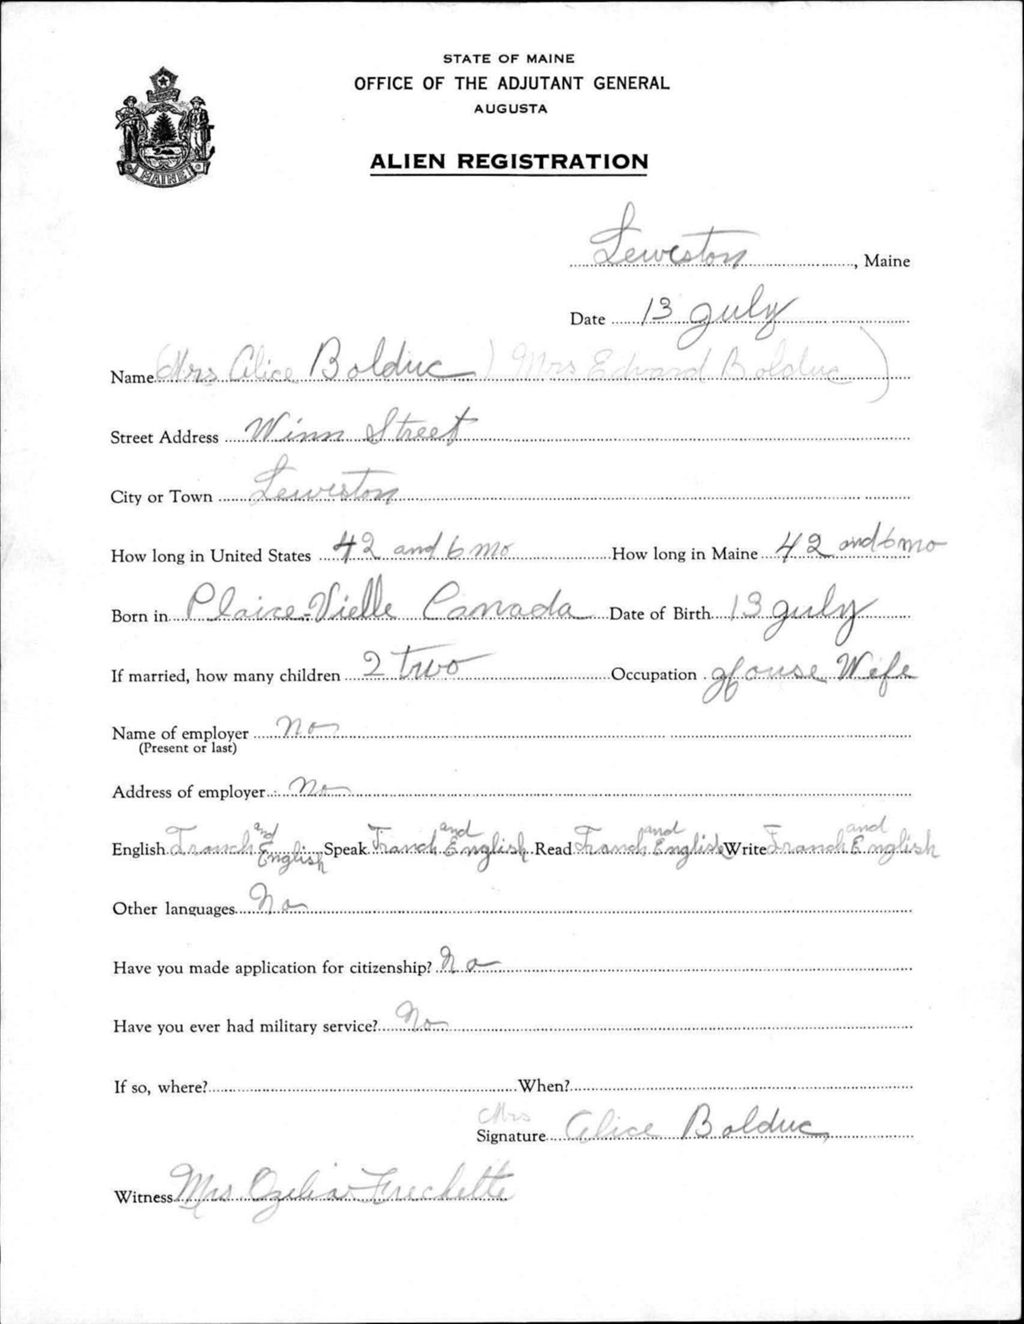 STATE OF MAINE
OFFICE OF THE ADJUTANT GENERAL
AUGUSTA
MAINE
ALIEN REGISTRATION
Lewiston, Maine
Date 13 july
Name (Mrs Alice Bolduc) (Mrs Edward Bolduc)
Street Address Winn Street
City or Town Lewiston
How long in United States 42 and 6 mo How long in Maine 42 and 6 mo
Born in Plaice-Vielle Canada Date of Birth 13 july
If married, how many children 2 two Occupation House Wife
Name of employer No
(Present or last)
Address of employer No
English Franch and English Speak Franch and English Read Franch and English Write Franch and English
Other languages No
Have you made application for citizenship? No
Have you ever had military service? No
If so, where? When?
Signature Mrs Alice Bolduc
Witness Mrs Ozelia Frechette